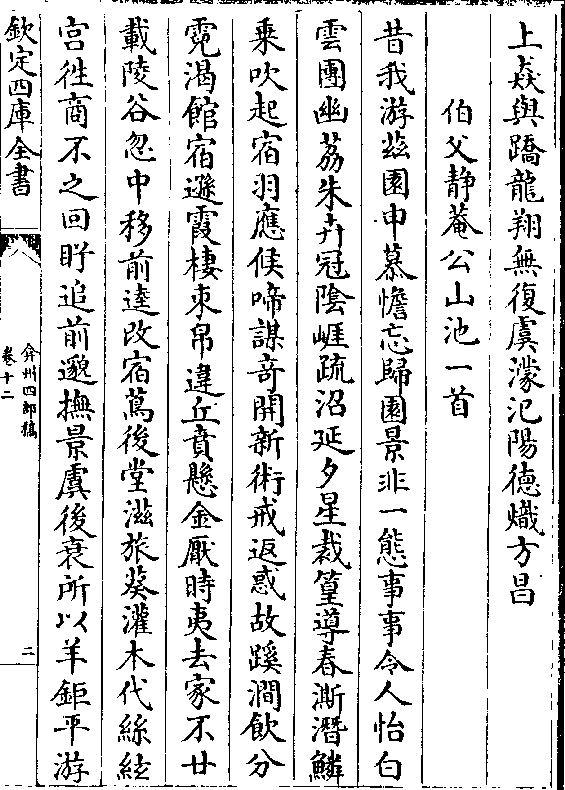 上猋與蹻龍翔無復虞濛汜陽德熾方昌
伯父静菴公山池一首
昔我游兹園中慕憺忘歸園景非一態事事令人怡白
雲團幽荔朱卉冠陰崕疏沼延夕星裁篁導春澌潛鱗
乗吹起宿羽應候啼謀竒開新術戒返惑故蹊澗飲分
霓渴館宿遯霞棲束帛違丘賁懸金厭時夷去家不廿
載陵谷忽中移前逵改宿蔦後堂滋旅葵灌木代絲絃
宫徃商不之回眝追前邈撫景虞後衰所以羊鉅平游
欽定四庫全書
弇州四部稿
卷十二
二